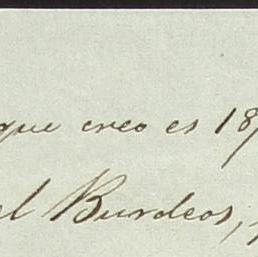 que creo es 18
el Burdeos,